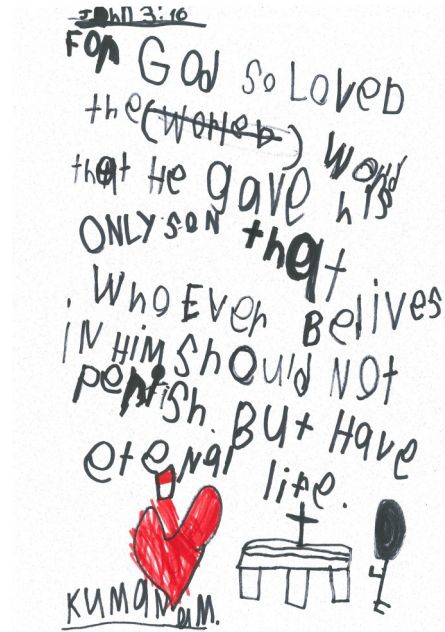 John 3:16
FOR GOd so LOVED
the (World) World
that He gave his
ONLY SON that
WhO EVer Belives
IN HIM ShOuld NOt
perish. BUt Have
eternal life.
KUMANam M.